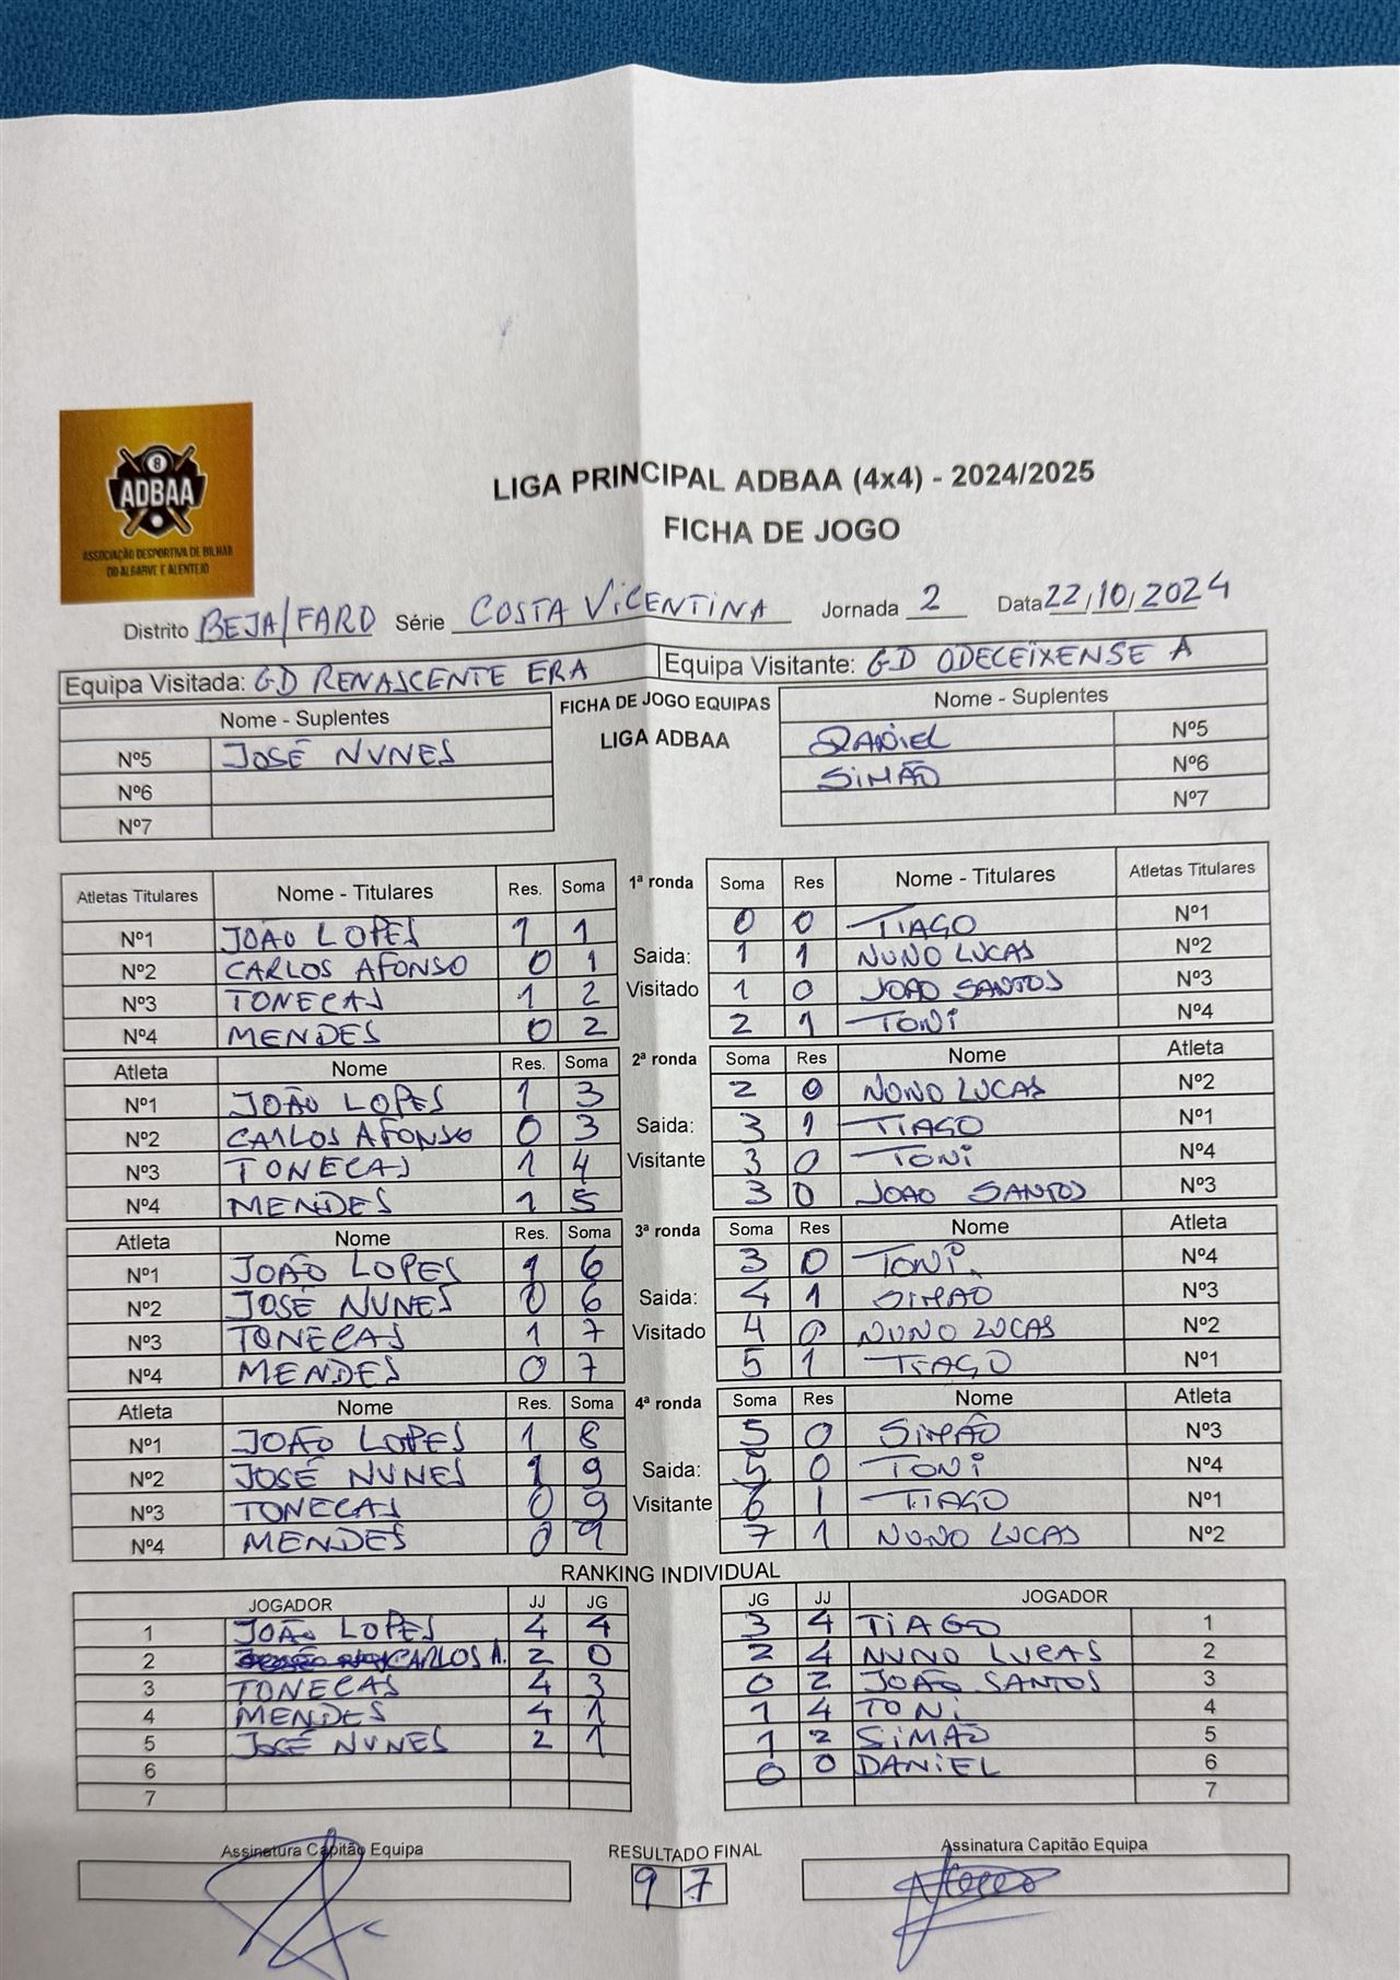 8
ADBAA
ASSOCIAÇÃO DESPORTIVA DE BILHAR
DO ALGARVE E ALENTEJO
LIGA PRINCIPAL ADBAA (4x4) - 2024/2025
FICHA DE JOGO
Distrito BEJA/FARO Série COSTA ViCENTiNA Jornada 2 Data 22/10/2024
Equipa Visitada: GD RENASCENTE ERA Equipa Visitante: GD ODECEIXENSE A
Nome - Suplentes FICHA DE JOGO EQUIPAS Nome - Suplentes
Nº5 JOSÉ NUNES LIGA ADBAA DANiEL Nº5
Nº6 SiMÃO Nº6
Nº7 Nº7
Atletas Titulares Nome - Titulares Res. Soma 1ª ronda Soma Res Nome - Titulares Atletas Titulares
Nº1 JOÃO LOPES 1 1 0 0 TIAGO Nº1
Nº2 CARLOS AFONSO 0 1 Saida: 1 1 NUNO LUCAS Nº2
Nº3 TONECAS 1 2 Visitado 1 0 JOAO SANTOS Nº3
Nº4 MENDES 0 2 2 1 TONi Nº4
Atleta Nome Res. Soma 2ª ronda Soma Res Nome Atleta
Nº1 JOÃO LOPES 1 3 2 0 NUNO LUCAS Nº2
Nº2 CARLOS AFONSO 0 3 Saida: 3 1 TIAGO Nº1
Nº3 TONECAS 1 4 Visitante 3 0 TONi Nº4
Nº4 MENDES 1 5 3 0 JOAO SANTOS Nº3
Atleta Nome Res. Soma 3ª ronda Soma Res Nome Atleta
Nº1 JOÃO LOPES 1 6 3 0 TONi. Nº4
Nº2 JOSÉ NUNES 0 6 Saida: 4 1 SIMAO Nº3
Nº3 TONECAS 1 7 Visitado 4 0 NUNO LUCAS Nº2
Nº4 MENDES 0 7 5 1 TIAGO Nº1
Atleta Nome Res. Soma 4ª ronda Soma Res Nome Atleta
Nº1 JOÃO LOPES 1 8 5 0 SiMÃO Nº3
Nº2 JOSÉ NUNES 1 9 Saida: 5 0 TONi Nº4
Nº3 TONECAS 0 9 Visitante 6 1 TIAGO Nº1
Nº4 MENDES 0 9 7 1 NUNO LUCAS Nº2
RANKING INDIVIDUAL
JOGADOR JJ JG JG JJ JOGADOR
1 JOÃO LOPES 4 4 3 4 TiAGO 1
2 CARLOS A. 2 0 2 4 NUNO LUCAS 2
3 TONECAS 4 3 0 2 JOÃO SANTOS 3
4 MENDES 4 1 1 4 TONi 4
5 JOSÉ NUNES 2 1 1 2 SiMÃO 5
6 0 0 DANiEL 6
7 7
Assinatura Capitão Equipa RESULTADO FINAL Assinatura Capitão Equipa
9 7